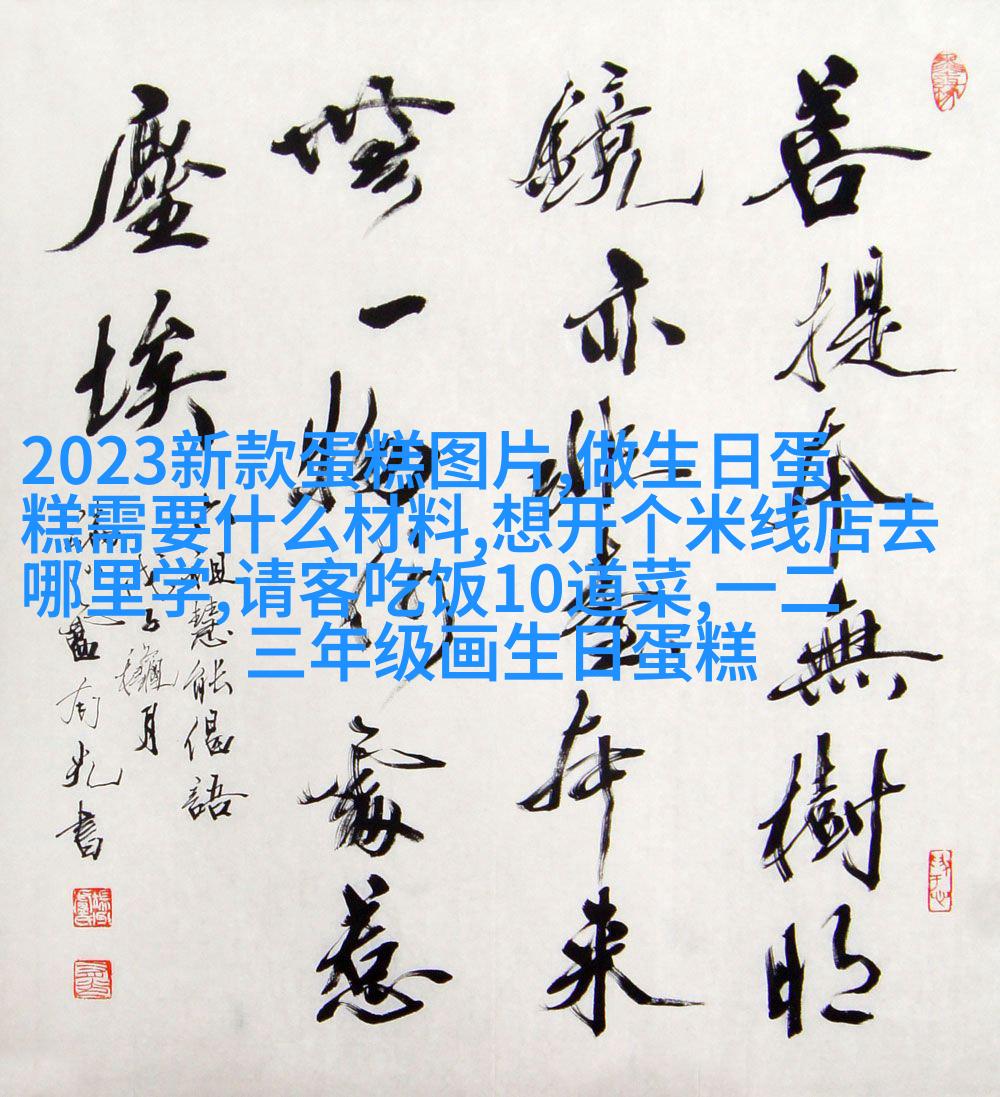 菩提本無樹明
鏡亦非臺本來
無一物何處惹
塵埃
祖慧能偈語
戊子穐月
書
2023新款蛋糕图片,做生日蛋
糕需要什么材料,想开个米线店去
哪里学,请客吃饭10道菜,一二
三年级画生日蛋糕